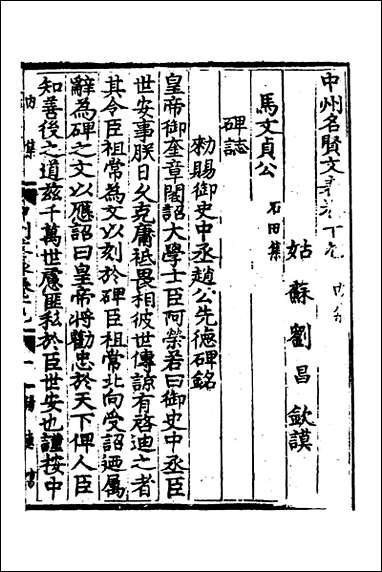 中州名賢文表卷十九 内集
姑蘇劉昌欽謨
馬文貞公 石田集
碑誌
勑賜御史中丞趙公先德碑銘
皇帝御奎章閣詔大學士臣阿榮若曰御史中丞臣
世安事朕日久克庸祗畏相彼世傳諒有啓迪之者
其令臣祖常為文以刻於碑臣祖常北向受詔迺屬
辭為碑之文以應詔曰皇帝將勸忠於天下俾人臣
知善後之道玆千萬世慮匪私於臣世安也謹按中
内集